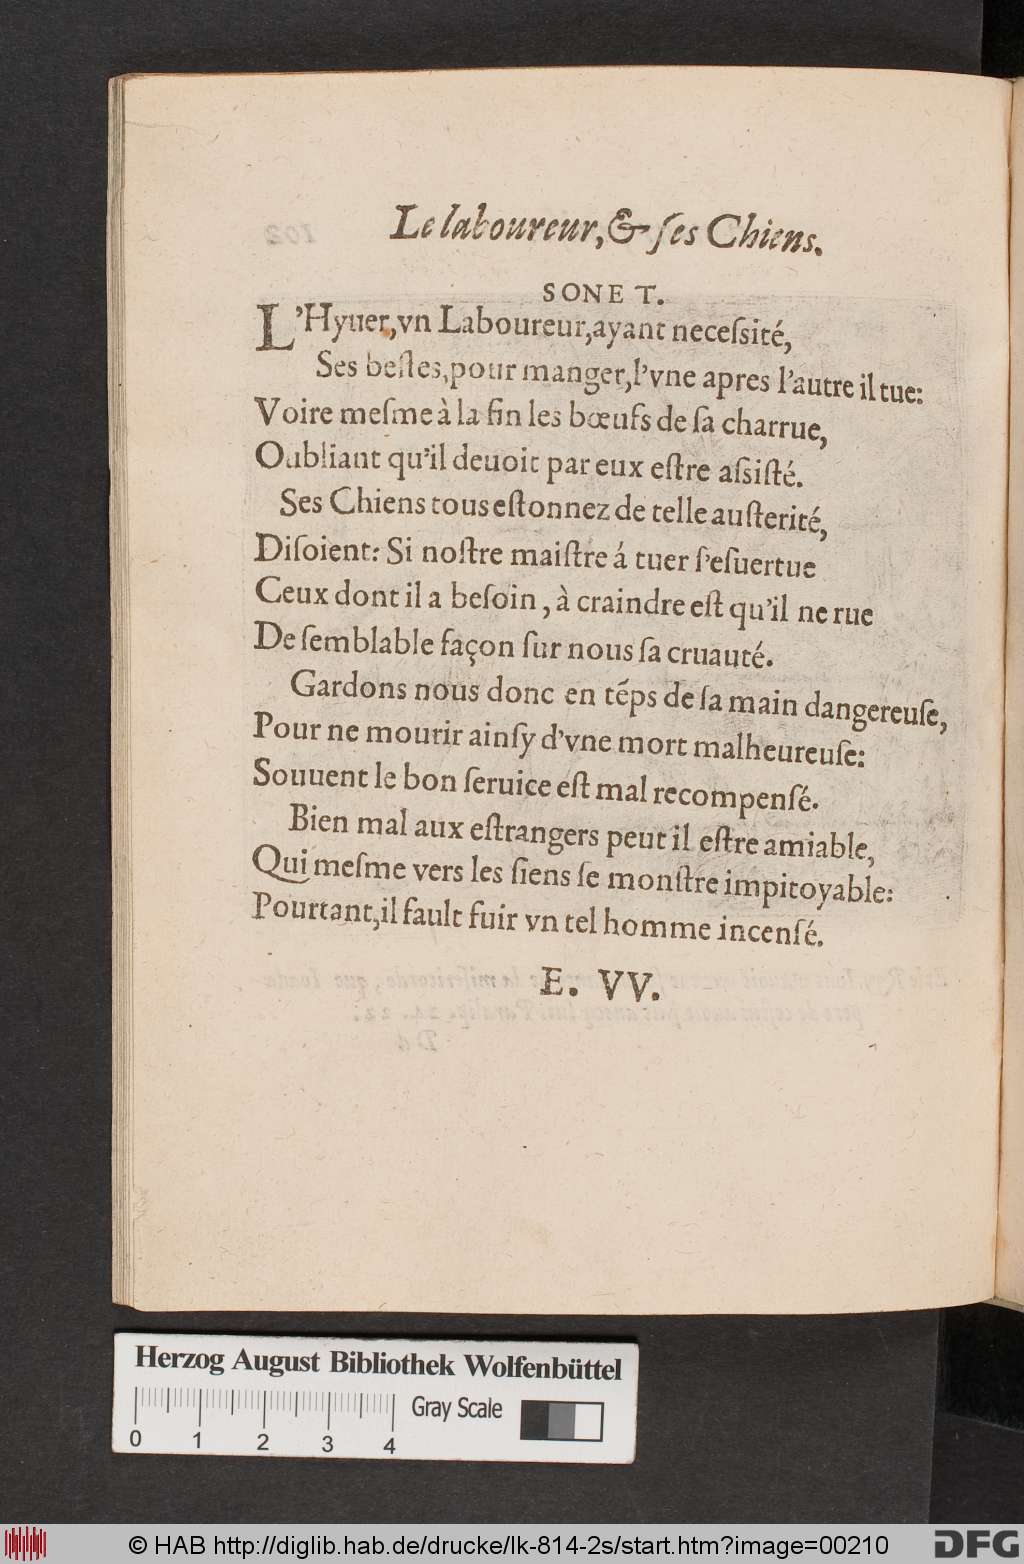 Le laboureur, & ſes Chiens.
SONET.
L'Hyuer, vn Laboureur, ayant neceſsité,
Ses beſtes, pour manger, l'vne apres l'autre il tue:
Voire meſme à la fin les bœufs de ſa charrue,
Oubliant qu'il deuoit par eux eſtre aſsiſté.
Ses Chiens tous eſtonnez de telle auſterité,
Diſoient: Si noſtre maiſtre á tuer ſ'eſuertue
Ceux dont il a beſoin, à craindre eſt qu'il ne rue
De ſemblable façon ſur nous ſa cruauté.
Gardons nous donc en téps de ſa main dangereuſe,
Pour ne mourir ainſy d'vne mort malheureuſe:
Souuent le bon ſeruice eſt mal recompenſé.
Bien mal aux eſtrangers peut il eſtre amiable,
Qui meſme vers les ſiens ſe monſtre impitoyable:
Pourtant, il fault fuir vn tel homme incenſé.
E. VV.
Herzog August Bibliothek Wolfenbüttel
Gray Scale
0 1 2 3 4
© HAB http://diglib.hab.de/drucke/lk-814-2s/start.htm?image=00210
DFG